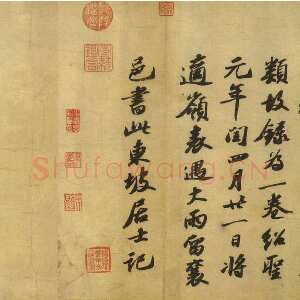 類故錄為一卷紹聖
元年閏四月廿一日將
適嶺表遇大雨留襄
邑書此東坡居士記
Shufawang.CN